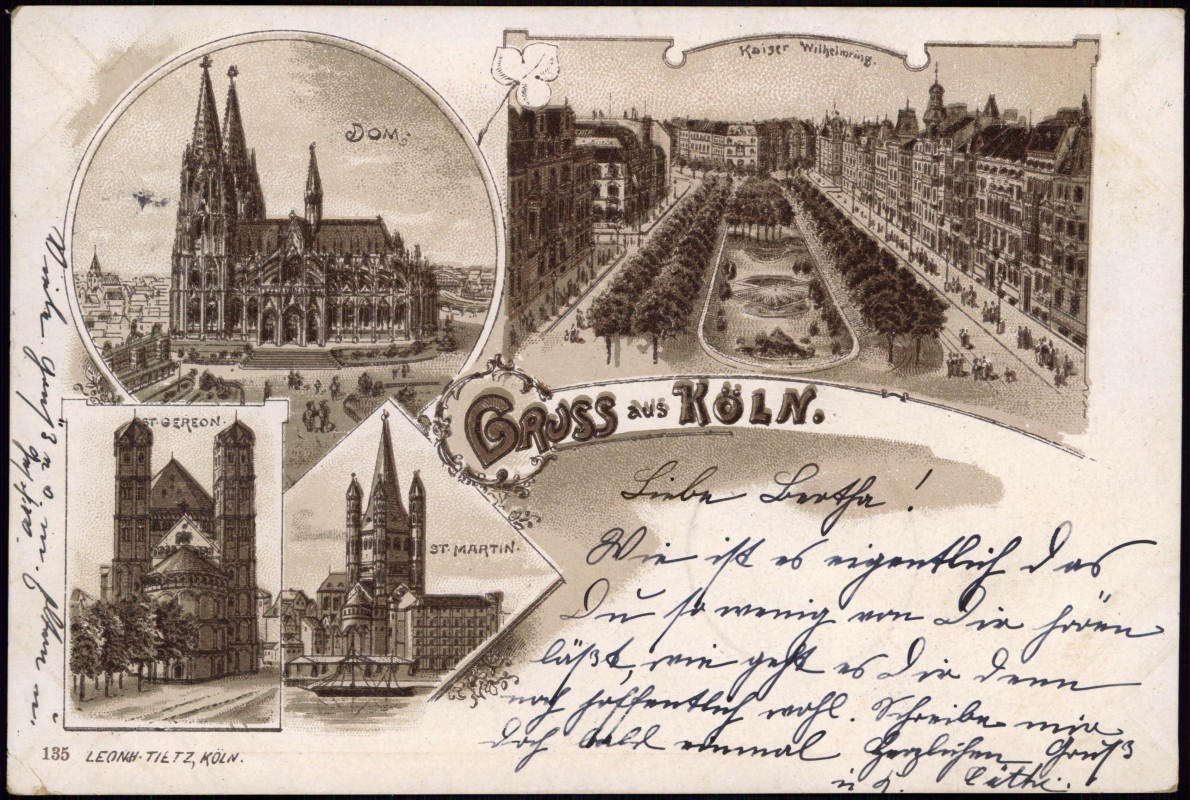 DOM.
Kaiser Wilhelmring.
GRUSS aus KÖLN.
ST. GEREON.
ST. MARTIN.
Liebe Bertha!
Wie ist es eigentlich das
Du so wenig von Dir hören
läßt, wie geht es Dir denn
noch hoffentlich wohl. Schreibe mir
doch bald einmal Herzlichen Gruß
u. K. Käthi.
Viele Grüße
135 LEONH. TIETZ, KÖLN.